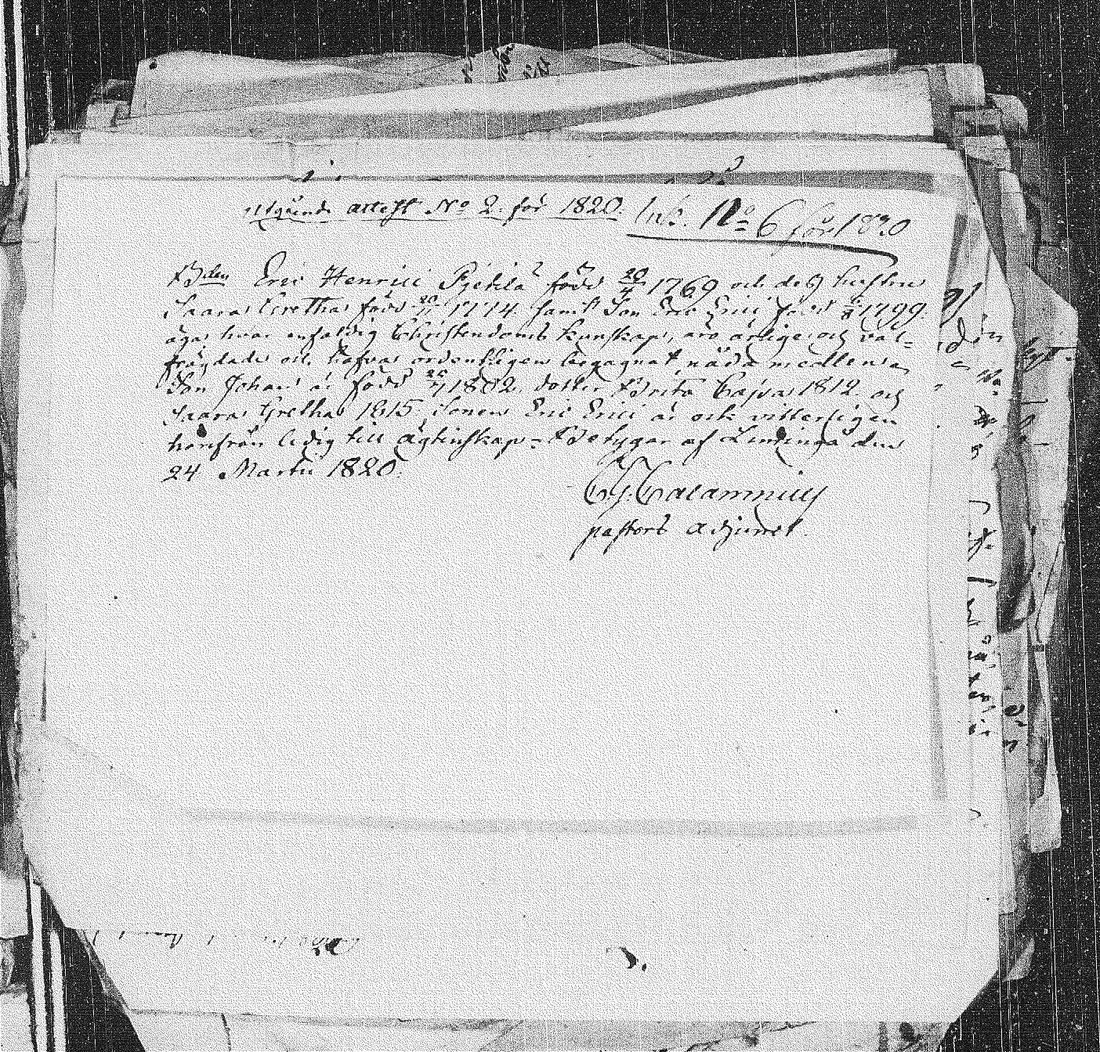 utgående attest No 2. för 1820. Ink. No 6 för 1820
Bden Eric Henrici född 20/4 1769 och dess hustru
Saara Gretha född 1774. samt Son Eric Erici född 1799.
äga hvar enfaldig Christendoms kunskap, äro ärlige och väl-
frägdade och hafva ordentligen begagnat nådamedlen.
Son Johan är född 1802. dotter Brita Cajsa 1812. och
Saara Gretha 1815. Sonen Eric Erici är ock vitterligen
härifrån ledig till ägtenskap. Betygar af den
24 Martii 1820.
Calamnius
pastors adjunct.